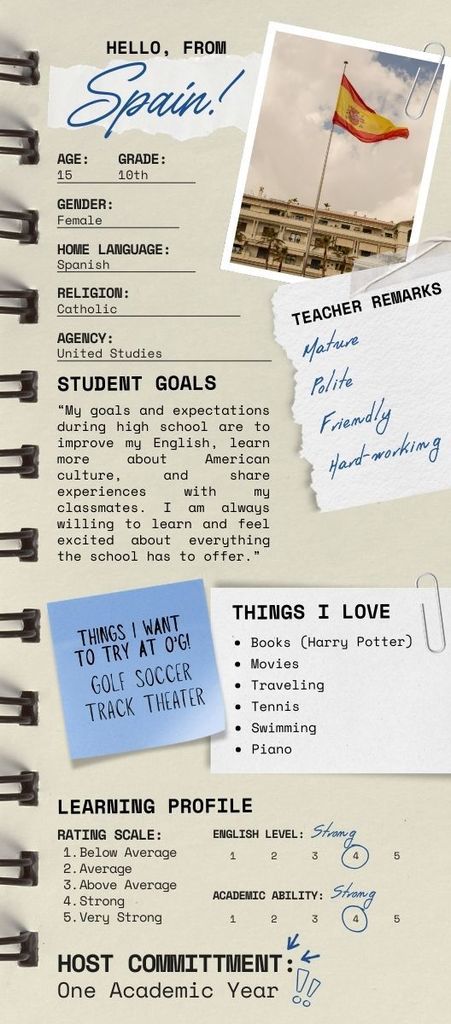 HELLO, FROM
Spain!
AGE: GRADE:
15 10th
GENDER:
Female
HOME LANGUAGE:
Spanish
RELIGION:
Catholic
AGENCY:
United Studies
TEACHER REMARKS
Mature
Polite
Friendly
Hard-working
STUDENT GOALS
“My goals and expectations
during high school are to
improve my English, learn
more about American
culture, and share
experiences with my
classmates. I am always
willing to learn and feel
excited about everything
the school has to offer.”
THINGS I WANT
TO TRY AT O'G!
GOLF SOCCER
TRACK THEATER
THINGS I LOVE
• Books (Harry Potter)
• Movies
• Traveling
• Tennis
• Swimming
• Piano
LEARNING PROFILE
RATING SCALE:
1. Below Average
2. Average
3. Above Average
4. Strong
5. Very Strong
ENGLISH LEVEL: Strong
1 2 3 4 5
ACADEMIC ABILITY: Strong
1 2 3 4 5
HOST COMMITTMENT:
One Academic Year !!